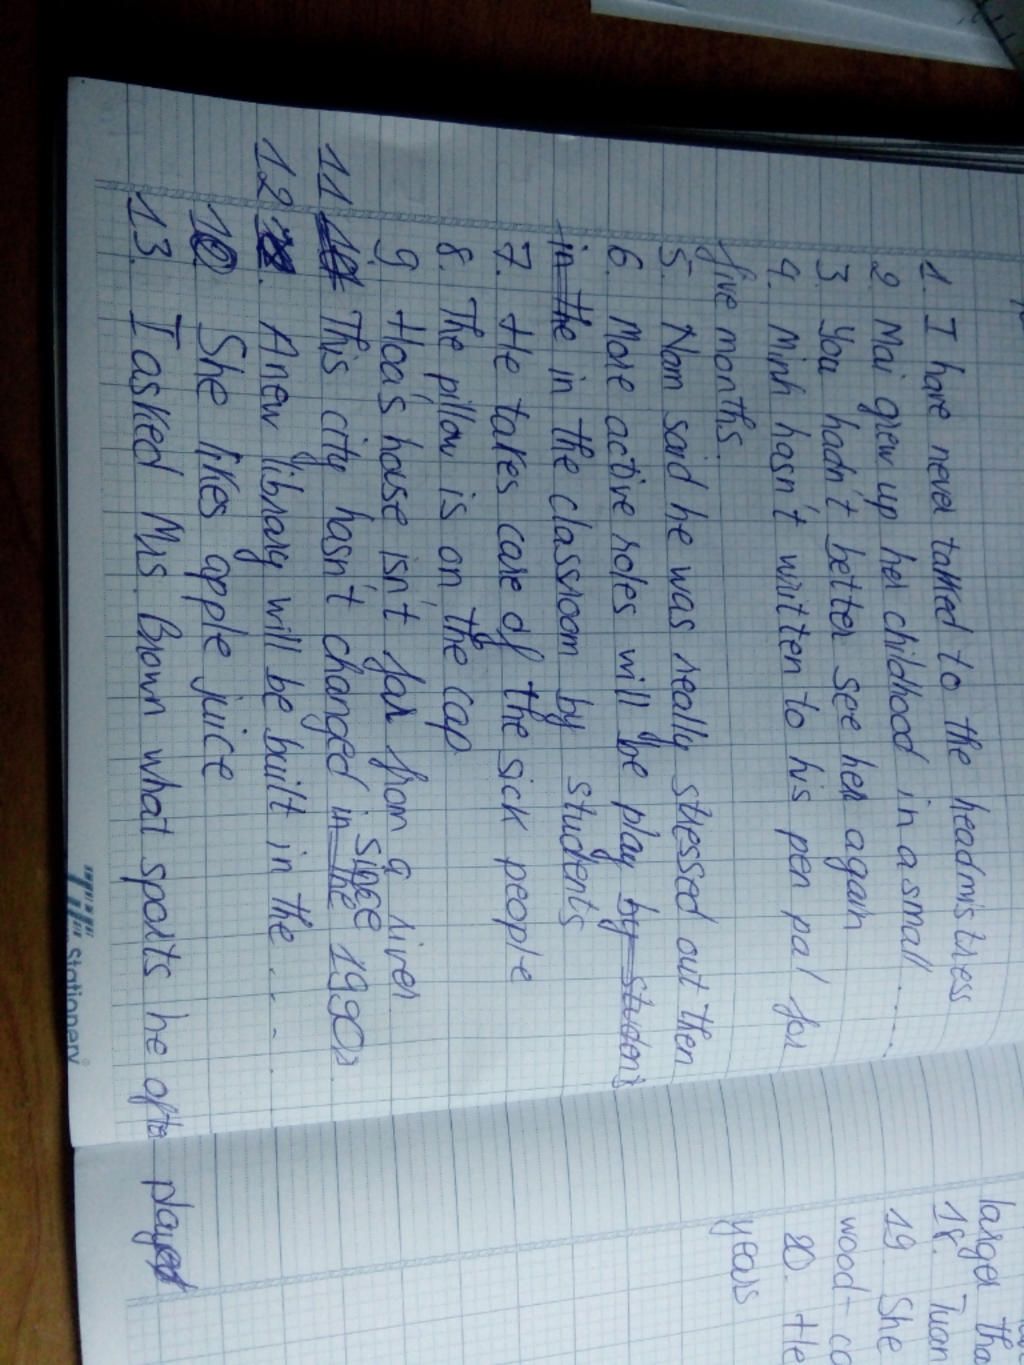 1. I have never talked to the headmistress
2 Mai grew up her childhood in a small .....
3. You hadn't better see her again
4. Minh hasn't written to his pen pal for
five months.
5. Nam said he was really stressed out then
6. More active roles will be play by student
in the in the classroom by students
7. He takes care of the sick people
8. The pillow is on the cap
9. Hoa's house isn't far from a river
11 This city hasn't changed in the since 1990s
12 . A new library will be built in the ....
10 She likes apple juice
13. I asked Mrs. Brown what sports he often played
Stationery
larger tha
18. Tuan
19 She
wood-co
20. He
years